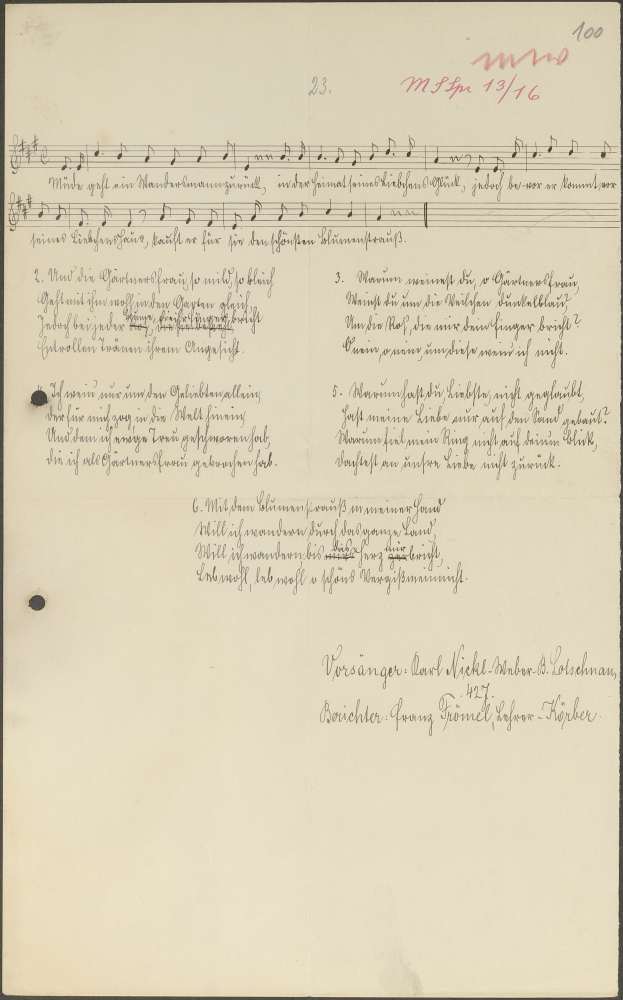 100
23.
M S Spr 13/16
Müde geht ein Wandersmann zurück, in der Heimat seines Liebchens Glück, jedoch be-vor er kommt vor
seines Liebchens Haus, kauft er für sie den schönsten Blumenstrauß.
2. Und die Gärtnersfrau, so mild, so bleich
Geht mit ihm wohl in den Garten gleich,
Jedoch bei jeder Blume, die ihr Finger bricht
Entrollen Tränen ihrem Angesicht.
3. Warum weinest du, o Gärtnersfrau,
Weinst du um die Veilchen dunkelblau?
Um die Ros, die mir dein Finger bricht?
O nein, o nein um diese wein ich nicht.
4. Ich wein' nur um den Geliebten allein,
der für mich zog in die Welt hinein,
Und dem ich ewge Treu geschworen hab,
die ich als Gärtnersfrau gebrochen hab.
5. Warum hast du, Liebste, nicht geglaubt,
Hast meine Liebe nur auf den Sand gebaut?
Warum fiel mein Ring nicht auf deinen Blick,
Dachtest an unsre Liebe nicht zurück.
6. Mit dem Blumenstrauß in meiner Hand
Will ich wandern durch das ganze Land,
Will ich wandern bis das Herz mir bricht,
Leb wohl, leb wohl o schöns Vergißmeinnicht.
Vorsänger: Karl Nickl-Weber-B. Lotschnau,
427.
Berichter: Franz Frömel, Lehrer-Körber.